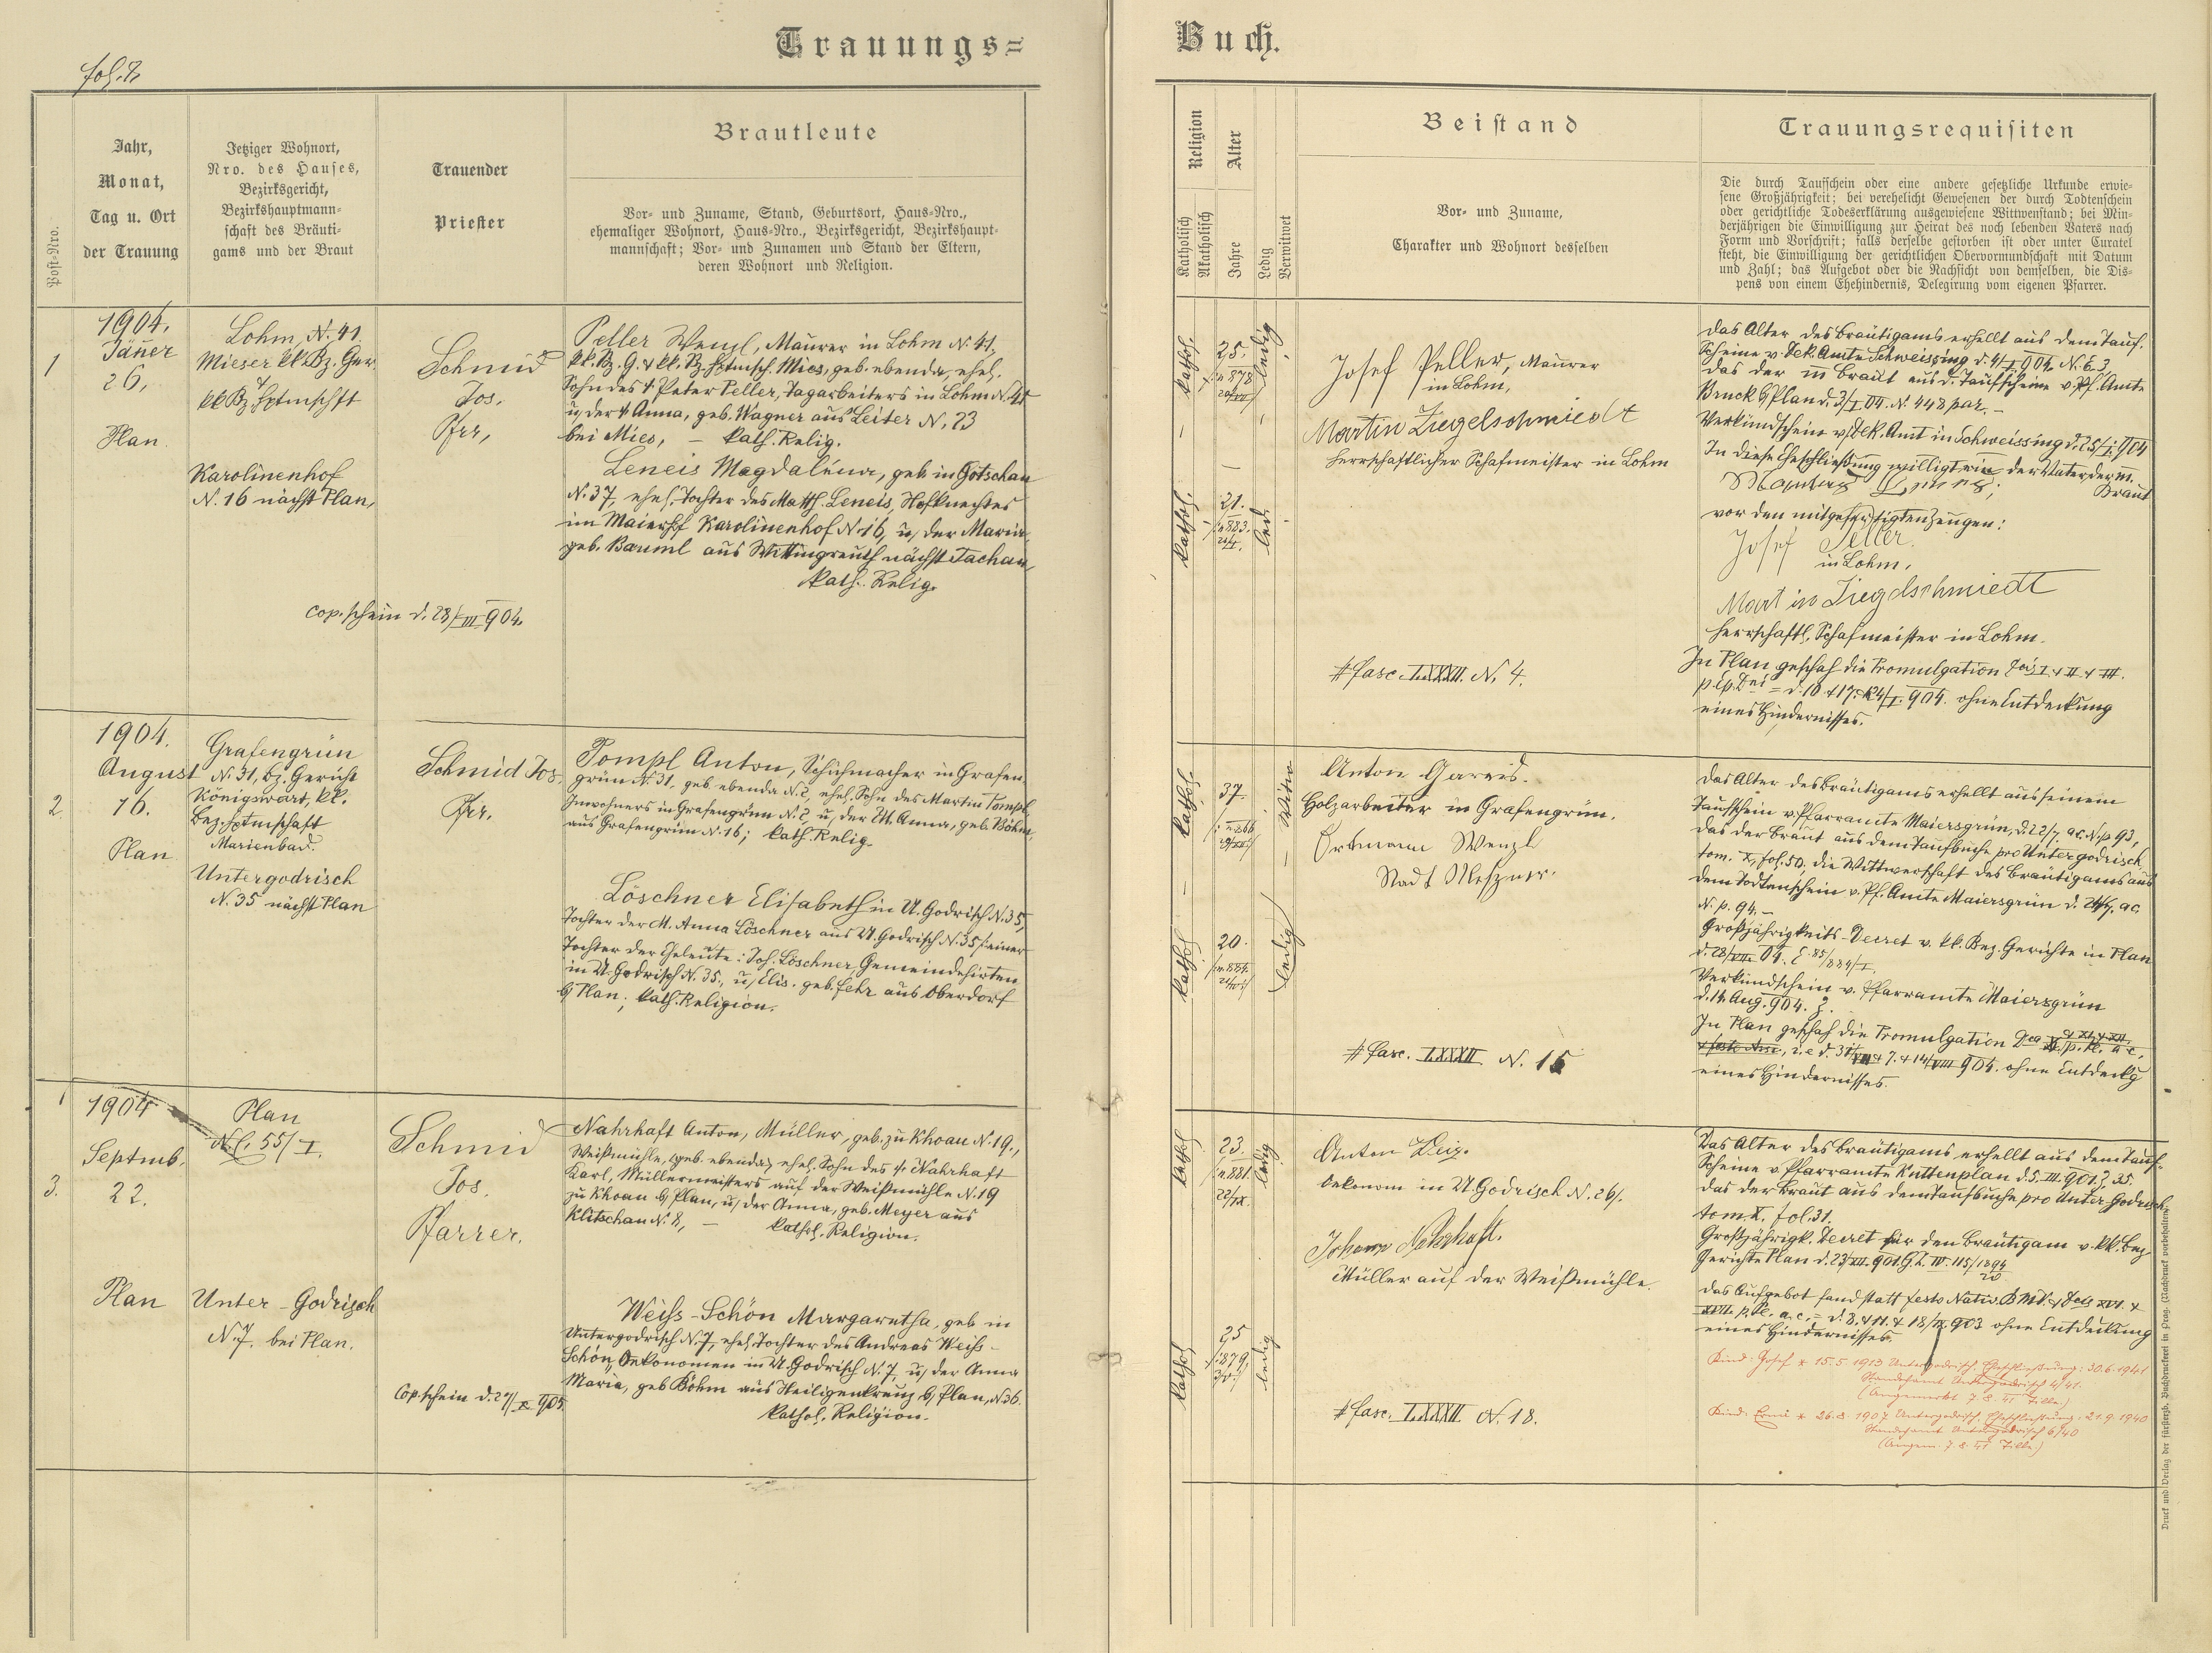 fol. 7.
Trauungs=
Jahr,
Monat,
Tag u. Ort
der Trauung
Post-Nro.
Jetziger Wohnort,
Nro. des Hauses,
Bezirksgericht,
Bezirkshauptmann-
schaft des Bräuti-
gams und der Braut
Trauender
Priester
Brautleute
Vor- und Zuname, Stand, Geburtsort, Haus-Nro.,
ehemaliger Wohnort, Haus-Nro., Bezirksgericht, Bezirkshaupt-
mannschaft; Vor- und Zunamen und Stand der Eltern,
deren Wohnort und Religion.
1
1904.
Jänner
26,
Plan.
Lohm, N. 41.
Mieser kk Bz. Ger.
kk Bz Hptmschft
Karolinenhof
N. 16 nächst Plan,
Schmid
Jos.
Pfrr,
Peller Wenzl, Maurer in Lohm N. 41,
kk. Bz. G. & kk. Bz. Hptmsch. Mies, geb. ebenda, ehel.
Sohn des † Peter Peller, Tagarbeiters in Lohm N. 41
u, der † Anna, geb. Wagner aus Leiter N. 23
bei Mies, – kath. Relig.
Leneis Magdalena, geb in Gotschau
N. 37, ehel. Tochter des Matth. Leneis, Hofknechtes
im Maierhof Karolinenhof N. 16, u, der Maria,
geb. Bäuml aus Wittingreuth nächst Tachau,
kath. Relig.
cop. schein d. 28/III 904.
2.
1904.
August
16.
Plan
Grafengrün
N. 31, bz. Gericht
Königswart, kk.
Bez. Hptmschaft
Marienbad.
Untergodrisch
N. 35 nächst Plan
Schmid Jos.
Pfrr.
Tompl Anton, Schuhmacher in Grafen-
grün N. 31, geb. ebenda N. 2, ehel. Sohn des Martin Tompl
Inwohners in Grafengrün N. 2, u, der M. Anna, geb. Böhm,
aus Grafengrün N. 16; kath. Relig.
Löschner Elisabeth in U. Godrisch N. 35,
Tochter der M. Anna Löschner aus U. Godrisch N. 35 /: einer
Tochter der Eheleute: Joh. Löschner, Gemeindehirten
in U. Godrisch N. 35, u, Elis. geb. Fehr aus Oberdorf
b/ Plan; kath. Religion.
3.
1904
Septmb.
22.
Plan
Plan
N. C. 55/I.
Unter-Godrisch
N. 7. bei Plan.
Schmid
Jos.
Pfarrer.
Nahrhaft Anton, Müller, geb. zu Khoau N. 19,
Weißmühle, geb. ebenda, ehel. Sohn des † Nahrhaft
Karl, Müllermeisters auf der Weißmühle N. 19
zu Khoau b/ Plan, u, der Anna, geb. Meyer aus
Klitschau N. 8, – kathol. Religion.
Weiß-Schön Margaretha, geb in
Untergodrisch N. 7, ehel. Tochter des Andreas Weiß-
Schön, Oekonomen in U. Godrisch N. 7, u, der Anna
Maria, geb Böhm aus Heiligenkreuz b/ Plan, N. 36.
kathol. Religion.
Cop. schein d. 27/X 905.
Buch.
Religion
Katholisch
Akatholisch
Alter
Jahre
Ledig
Verwitwet
Beistand
Vor- und Zuname,
Charakter und Wohnort desselben
Trauungsrequisiten
Die durch Taufschein oder eine andere gesetzliche Urkunde erwie-
sene Großjährigkeit; bei verehelicht Gewesenen der durch Todtenschein
oder gerichtliche Todeserklärung ausgewiesene Wittwenstand; bei Min-
derjährigen die Einwilligung zur Heirat des noch lebenden Vaters nach
Form und Vorschrift; falls derselbe gestorben ist oder unter Curatel
steht, die Einwilligung der gerichtlichen Obervormundschaft mit Datum
und Zahl; das Aufgebot oder die Nachsicht von demselben, die Dis-
pens von einem Ehehindernis, Delegirung vom eigenen Pfarrer.
kathol.
25.
n 878
ledig
kathol.
21.
n 883.
led.
Josef Peller, Maurer
in Lohm,
Martin Ziegelschmiedt
herrschaftlicher Schafmeister in Lohm
# fasc. LXXXII. N. 4.
Das Alter des Bräutigams erhellt aus dem Tauf-
Scheine v. Dek. Amte Schweissing d. 4/I. 904. N. E. 3,
das der m Braut aus d. Taufscheine v. Pf. Amte
Bruck b/ Plan d. 3/I. 04. N. 448 par. –
Verkündschein v. Dek. Amt in Schweissing d. 25/I. 904
In diese Eheschließung willigt ein der Vater der m.
Braut
vor den mitgefertigten Zeugen:
Josef Peller
in Lohm.
Martin Ziegelschmiedt
herrschaftl. Schafmeister in Lohm.
In Plan geschah die Promulgation Dcis I & II & III.
p. Ep. Dni = d. 10 & 17. & 24/I. 904. ohne Entdeckung
eines Hindernisses.
kathol.
37.
n 866
Witw
kathol
20.
n 884.
ledig
Anton Gareis.
Holzarbeiter in Grafengrün.
Erbmann Wenzl
Stadt Meßner.
# fasc. LXXXII N. 15
Das Alter des Bräutigams erhellt aus seinem
Taufschein v. Pfarramte Maiersgrün, d. 22/7. ac. N. p 93,
das der Braut aus dem Taufbuche pro Untergodrisch
tom. X, fol. 50, die Wittwerschaft des Bräutigams aus
dem Todtenschein v. Pf. Amte Maiersgrün d. 24/7. ac.
N. p. 94. –
Großjährigkeits-Decret v. kk. Bez. Gerichte in Plan
d. 28/VII 04.
Verkündschein v. Pfarramte Maiersgrün
d. 14. Aug. 904.
In Plan geschah die Promulgation
i. e d. 31/VII & 7. & 14/VIII 904. ohne Entdeckg
eines Hindernisses.
kathol
23.
n 881.
22/IX.
ledig
kathol
25
879,
ledig
Anton
Oekonom in U. Godrisch N. 26/.
Johann Nahrhaft.
Müller auf der Weißmühle.
# fasc. LXXXII N. 18.
Das Alter des Bräutigams erhellt aus dem Tauf-
Scheine v. Pfarramte Kuttenplan d. 5. III. 901. Z. 35.
das der Braut aus dem Taufbuche pro Unter-Godrisch
tom. X. fol. 31.
Großjährigk. Decret für den Bräutigam v. kk. Bez
Gerichte Plan d. 23/VII. 901.
Das Aufgebot fand statt festo Nativ. B M V. & Dcis XVI. &
XVII. p. Pe. a. c. = d. 8. & 11. & 18/IX 903 ohne Entdeckung
eines Hindernisses.
Kind: Josef * 15.5.1913 Untergodrisch. Eheschließung: 30.6.1941
Standesamt Untergodrisch 4/41.
(Angemerkt 7.8.41 Zille)
Kind: Erni * 26.8.1907 Untergodrisch. Eheschließung: 21.9.1940
Standesamt Untergodrisch 6/40
(Angem. 7.8.41 Zille)
Druck und Verlag der fürsterzb. Buchdruckerei in Prag. (Nachdruck vorbehalten.)